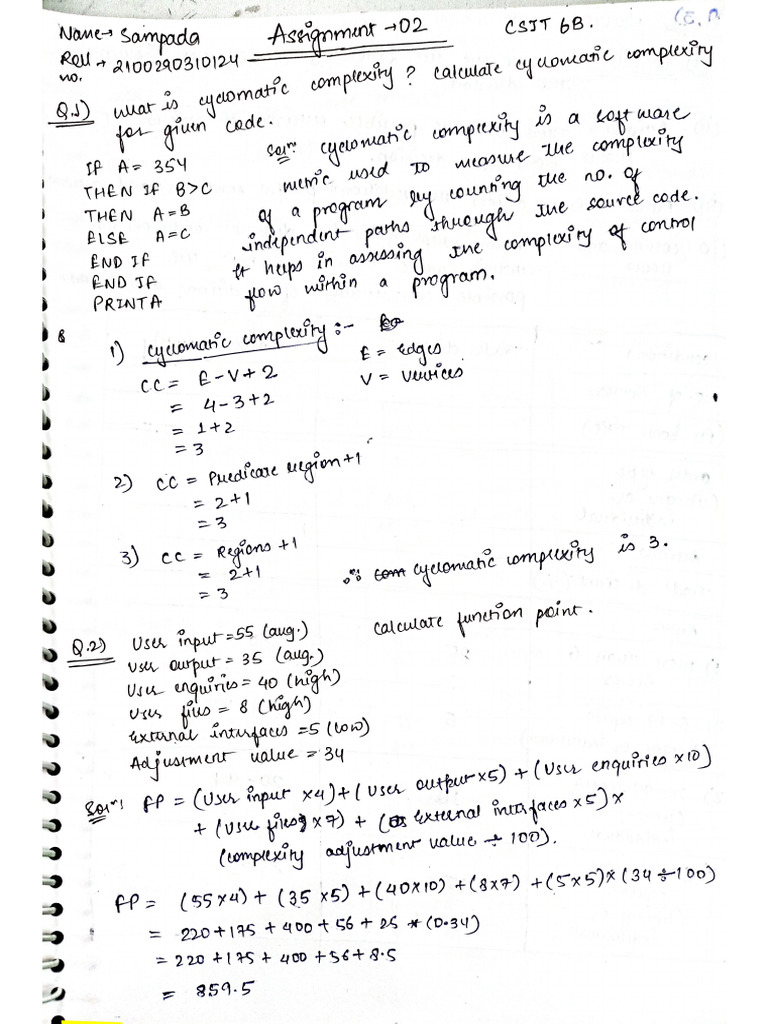 Name→ Sampada Assignment→02 CSIT 6B.
Roll no. → 2100290310124
Q.1) What is cyclomatic complexity? Calculate cyclomatic complexity
for given code.
IF A= 354
THEN IF B>C
THEN A=B
ELSE A=C
END IF
END IF
PRINTA
Solⁿ cyclomatic complexity is a software
metric used to measure the complexity
of a program by counting the no. of
independent paths through the source code.
It helps in assessing the complexity of control
flow within a program.
8
1) cyclomatic complexity :-
CC = E-V+2
= 4-3+2
= 1+2
= 3
E = edges
V = vertices
2) CC = Predicate region+1
= 2+1
= 3
3) CC = Regions +1
= 2+1
= 3
∴ cyclomatic complexity is 3.
Q.2) User input =55 (avg.) Calculate function point.
User output = 35 (avg.)
User enquiries = 40 (high)
User files = 8 (high)
External interfaces =5 (low)
Adjustment value = 34
Solⁿ: FP = (User input x4)+(User output x5) + (User enquiries x10)
+ (User files x7) + (External interfaces x5) x
(complexity adjustment value ÷ 100).
FP = (55x4) + (35 x5) + (40x10) + (8x7) + (5x5)x (34 ÷100)
= 220+175 + 400 + 56 + 25 * (0.34)
= 220 +175 + 400 +56+ 8.5
= 859.5